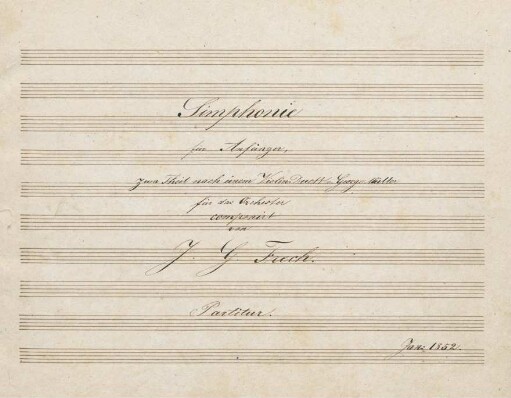 Simphonie
für Anfänger,
zum Theil nach einem Violin Duett v. George Müller
für das Orchester
componirt
von
J. G. Fuch.
Partitur.
Jan. 1852.